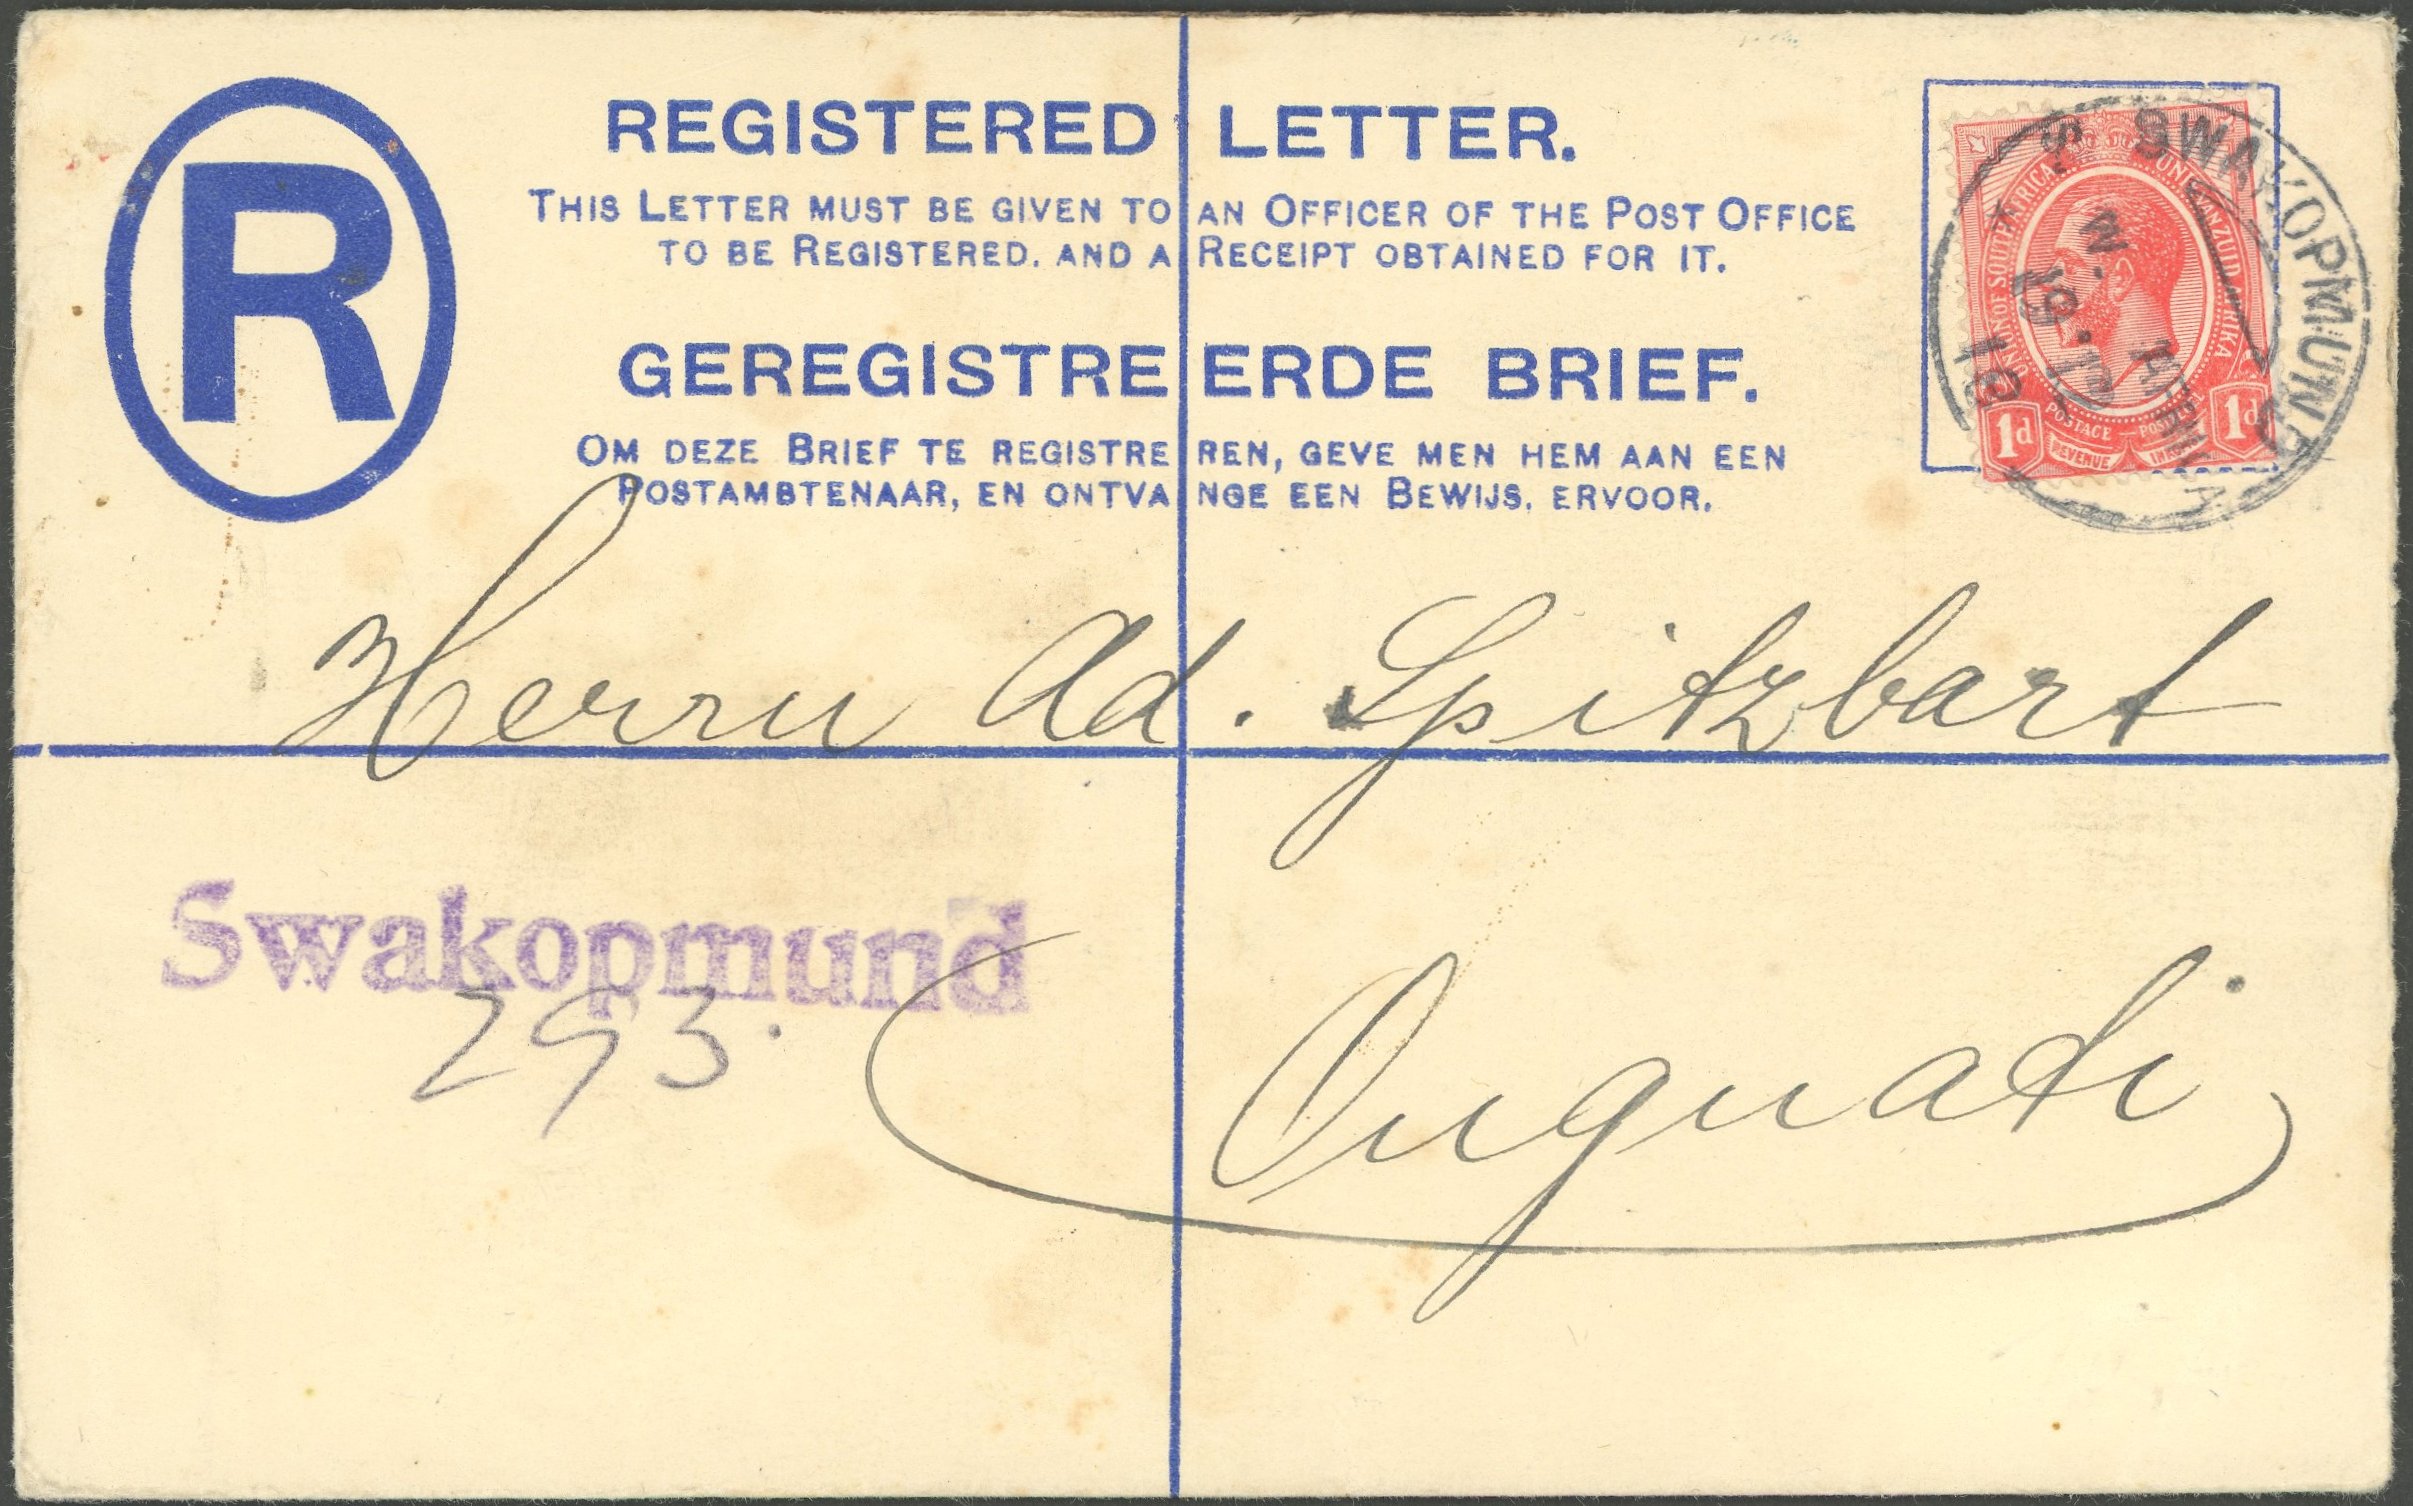 R
REGISTERED LETTER.
THIS LETTER MUST BE GIVEN TO AN OFFICER OF THE POST OFFICE
TO BE REGISTERED. AND A RECEIPT OBTAINED FOR IT.
GEREGISTREERDE BRIEF.
OM DEZE BRIEF TE REGISTREREN, GEVE MEN HEM AAN EEN
POSTAMBTENAAR, EN ONTVANGE EEN BEWIJS. ERVOOR.
UNION OF SOUTH AFRICA UNIE VAN ZUID AFRIKA
1d POSTAGE REVENUE 1d
SWAKOPMUND
S. W. AFRIKA
19
Herrn Ad. Spitzbart
Swakopmund
293.
Onguati